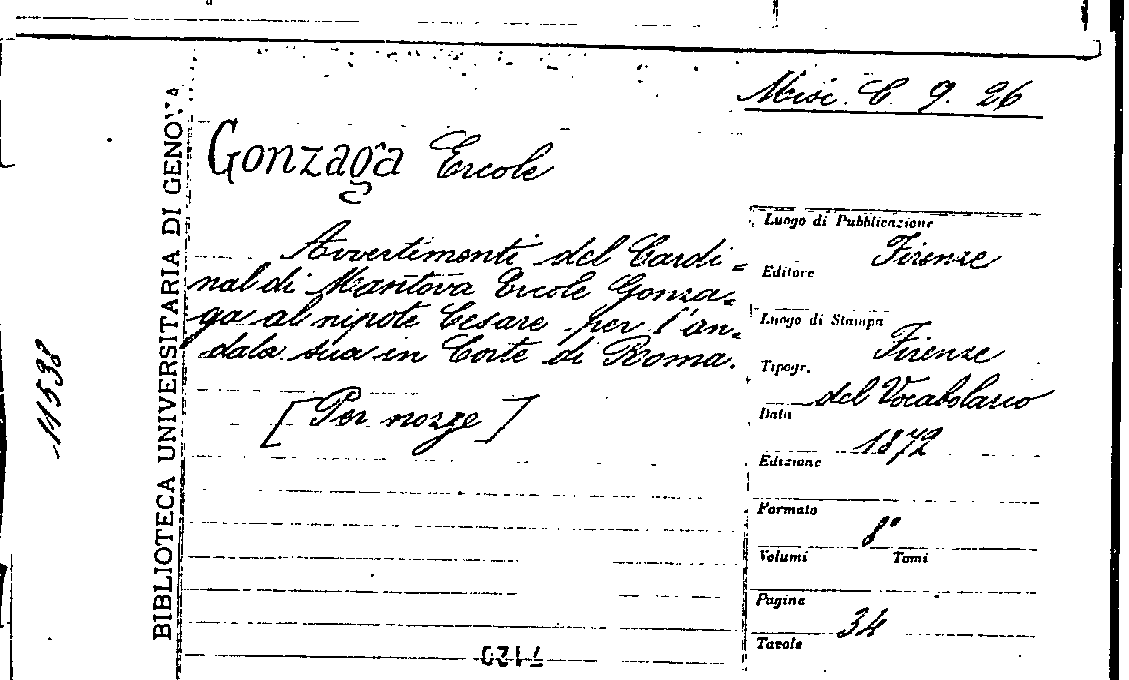 Misc. C. 9. 26
Gonzaga Ercole
Avvertimenti del Cardi=
nal di Mantova Ercole Gonza=
ga al nipote Cesare per l'an=
data sua in Corte di Roma.
[Per nozze]
Luogo di Pubblicazione
Firenze
Editore
Luogo di Stampa
Firenze
Tipogr.
del Vocabolario
Data
1872
Edizione
Formato
8°
Volumi Tomi
Pagine
34
Tavole
BIBLIOTECA UNIVERSITARIA DI GENOVA
11538